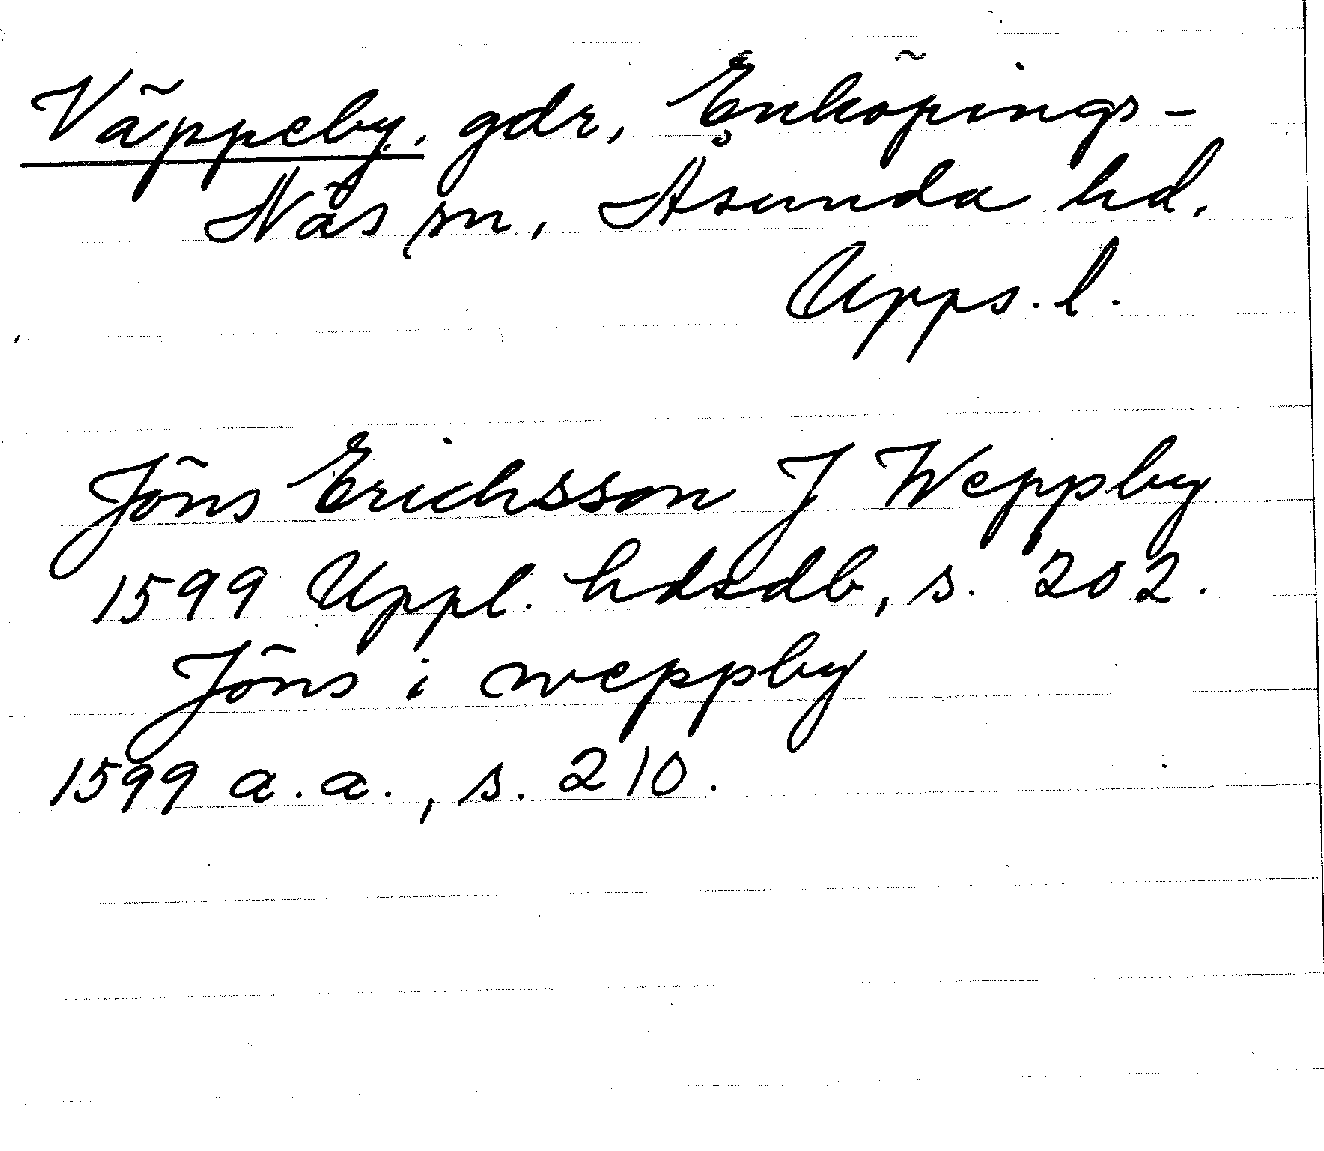 Väppeby, gdr, Enköpings-
Näs sn, Åsunda hd,
Upps. l.
Jöns Erichsson J Weppby
1599 Uppl. hdsdb, s. 202.
Jöns i weppby
1599 a. a., s. 210.